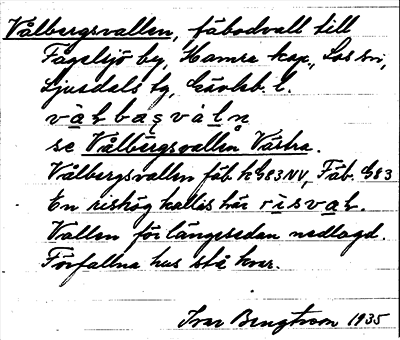 Vålbergsvallen, fäbodvall till
Fågelsjö by, Hamra kap., Los sn,
Ljusdels tg, Gävleb. l.
se Vålbergsvallen Västra.
Vålbergsvallen fäb. h G83NV, Fäb. G83
En rishög kallas här risvak.
Vallen för längesedan nedlagd.
Förfallna hus stå kvar.
Ivar Bengtsson 1935